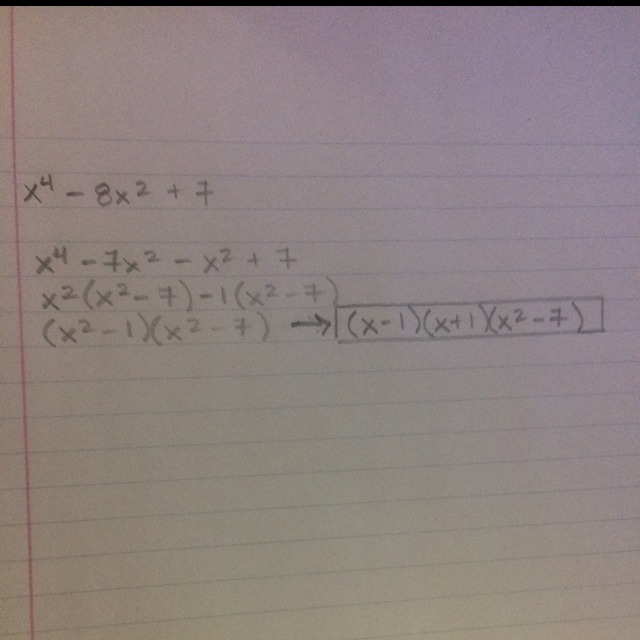 x⁴ - 8x² + 7
x⁴ - 7x² - x² + 7
x²(x² - 7) - 1(x² - 7)
(x² - 1)(x² - 7) → (x - 1)(x + 1)(x² - 7)